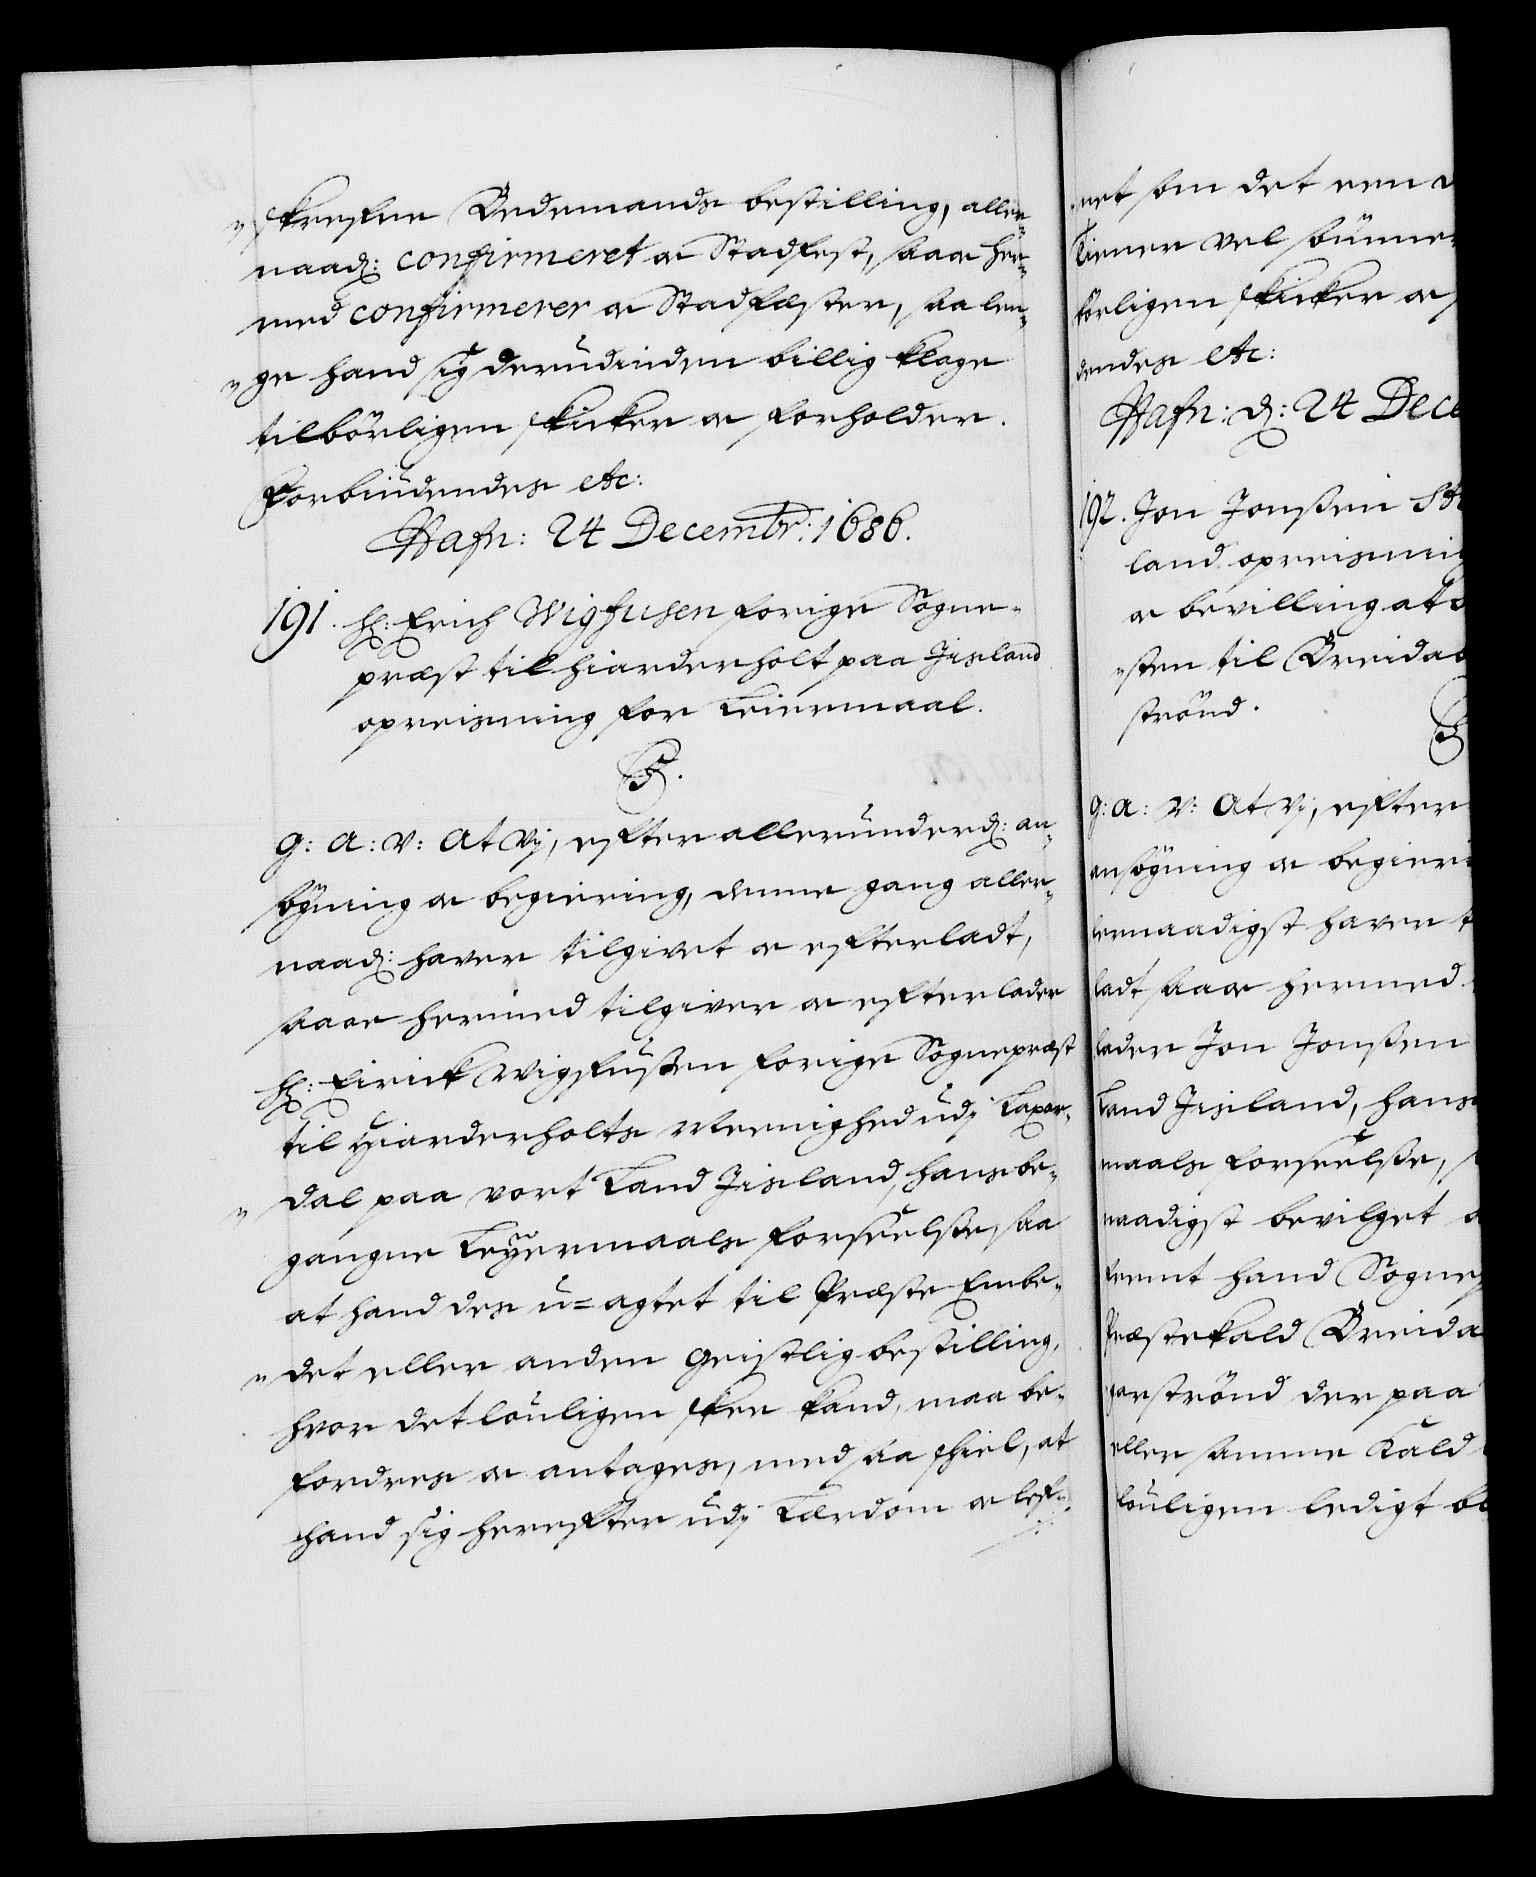 „skrefne Bedemands bestilling, aller„
naad: confirmeret oc Stadfest, saa oc her„
med confirmerer oc Stadfæster, saa len„
„ge hand sig derudinden billig kloge
tilbörligen skicker oc forholder.
Forbiudendes etc:
Hafn: 24 Decembr: 1686.
191. H: Erich Wigfusen forige Sogne„
præst til Hiarderholt paa Jisland
opreisning for Leiermaal.
C5.
G: A: V: At Vj, efter allerunderd: an„
sögning oc begiering, denne gang aller„
naad: haver tilgivet oc efterladt,
saa oc hermed tilgiver oc efterlader
H: Eirick Wigfussen forige Sognepræst
til Hiarderholts Meenighed udj Laxar„
„dal paa vort Land Jisland, hans be„
gangne Leyermaals forseelse, saa
at hand des u=agtet til Præste Embe„
„det eller anden Geistlig bestilling,
hvor det louligen skee kand, maa be„
fordres oc antages, med saa skiel, at
hand sig herefter udj Lærdom oc lef„
net som det een
Tiener vel sømme
börligen skicker oc
dendes etc:
Hafn: d: 24 Dece
192. Jon Jonssen St
land opreisning
oc bevilling at
„sten til Breida
strönd.
G: A: V: At Vj, efter
ansögning oc begieri
lernaadigst haver t
ladt saa oc hermed
lader Jon Jonssen
Land Jisland, hans
maals forseelse,
naadigst bevilget
fremt hand Sogne
Præstekald Breida
garströnd der paa
eller samme Kald
louligen ledigt bl